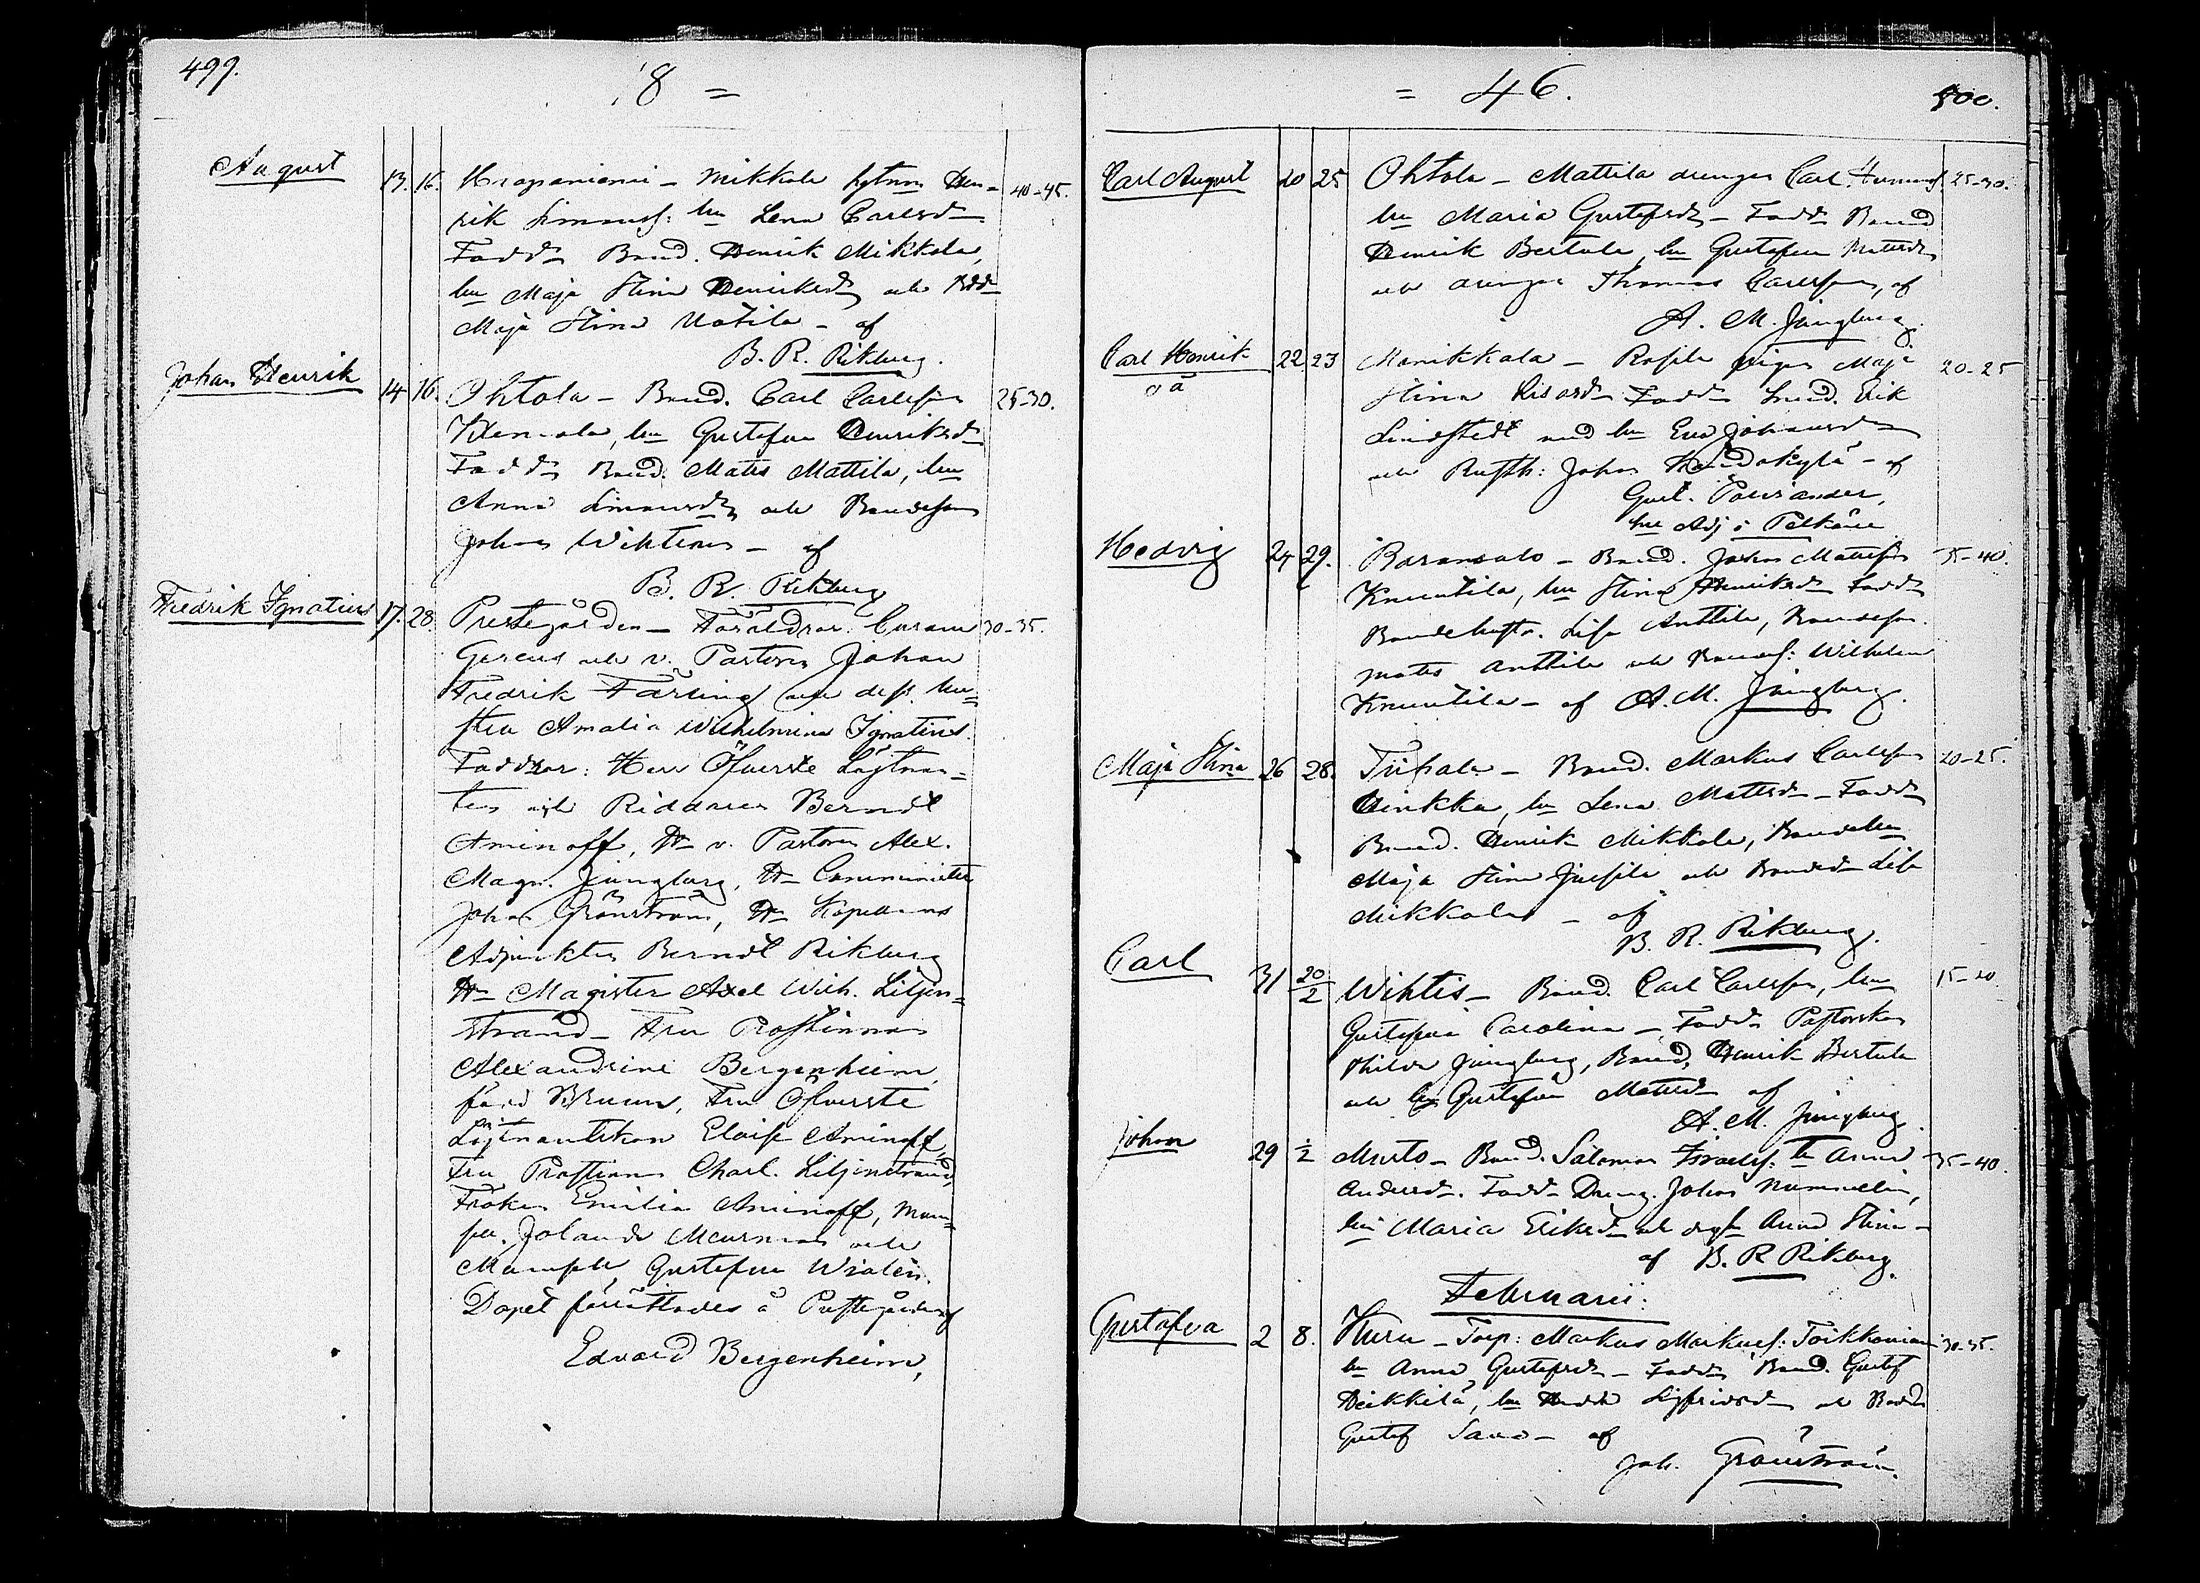 499.
18 =
August 13. 16. Krapaniemi - Mikkola hyttm Hen- 40-45.
rik Simonss: hu Lena Carlsdr
Fadd. Bond. Henrik Mikkola,
hu Maja Stina Henriksdr och
Maja Stina Uotila - af
B. R. Rikberg.
Johan Henrik 14 16. Ohtola - Bond. Carl Carlsson 25-30.
hu Gustafva Henriksdr
Fadd. Bond. Matts Mattila, hu
Anna Simonsdr och Bondeson
Johan - af
B. R. Rikberg
Fredrik Ignatius 17. 28. Prestegården - Föräldrar: Curam 30-35.
Gerens och v. Pastorn Johan
Fredrik Färling och dess hu-
stru Amalia Wilhelmina Ignatius.
Faddrar: Herr Öfverste Löjtnan-
ten och Riddaren Berndt
Aminoff, Hr v. Pastorn Alex.
Magn. Jüngberg, Hr Comminister
Johan Grönström, Hr Kapellans
Adjunkten Berndt Rikberg
Hr Magister Axel Wilh. Liljen-
strand - Fru Prostinnan
Alexandrine Bergenheim,
född Bruun, Fru Öfverste
Löjtnantskan Eloise Aminoff,
Fru Prostinnan Charl. Liljenstrand,
Fröken Emilia Aminoff, Mam-
sell Jolanda Meurman och
Mamsell Gustafva Widlén.
Dopet förrättades å Prestegården af
Edvard Bergenheim,
= 46.
500.
Carl August 20 25 Ohtola - Mattila drengen Carl 25-30.
hu Maria Gustafsdr - Fadd. Bond
Henrik Bertula hu Gustafva Mattsdr
och drengen Thomas Carlsson, af
A. M. Jüngberg.
Carl Henrik 22 23 Manikkala - pigan Maja 20-25
oä Stina Fadd. Erik
Lindstedt med hu Eva Johansdr
och Rusth: Johan - af
Gust. Polviander,
Adj i Pelkäne
Hedvig 24 29. Bond. Johan Mattsson 35-40.
Knuutila, hu Stina Henriksdr Fadd
Bondehustr. Lisa Anttila, Bondeson
Matts Anttila och Bondes: Wilhelm
Knuutila - af A. M. Jüngberg.
Maja Stina 26 28. Bond. Markus Carlsson 20-25.
hu Lena Mattsdr - Fadd
Bond. Henrik Mikkola, Bondehu
Maja Stina och Bondedr Lisa
Mikkola - af
B. R. Rikberg.
Carl 31 20/2 Wihtis - Bond. Carl Carlsson, hu 15-20.
Gustafva Carolina - Fadd. Pastorskan
Jüngberg, Bond. Henrik Bertula
och hu Gustafva Mattsd. af
A. M. Jüngberg.
Johan 29 1/2 Murto - Bond. Salomon Israelss. hu Anna 35-40.
Andersd. Fadd. Dreng. Johan Nummelin,
hu Maria Eriksd. och Anna Stina -
af B. R Rikberg.
Februarii:
Gustafva 2 8. Kuru - Torp: Markus Markuss: Toikkonien 30-35.
hu Anna Gustafsdr - Fadd. Bond. Gustaf
Heikkilä, hu Hedda Sigfridsd. och
Gustaf - af
Joh. Grönström.